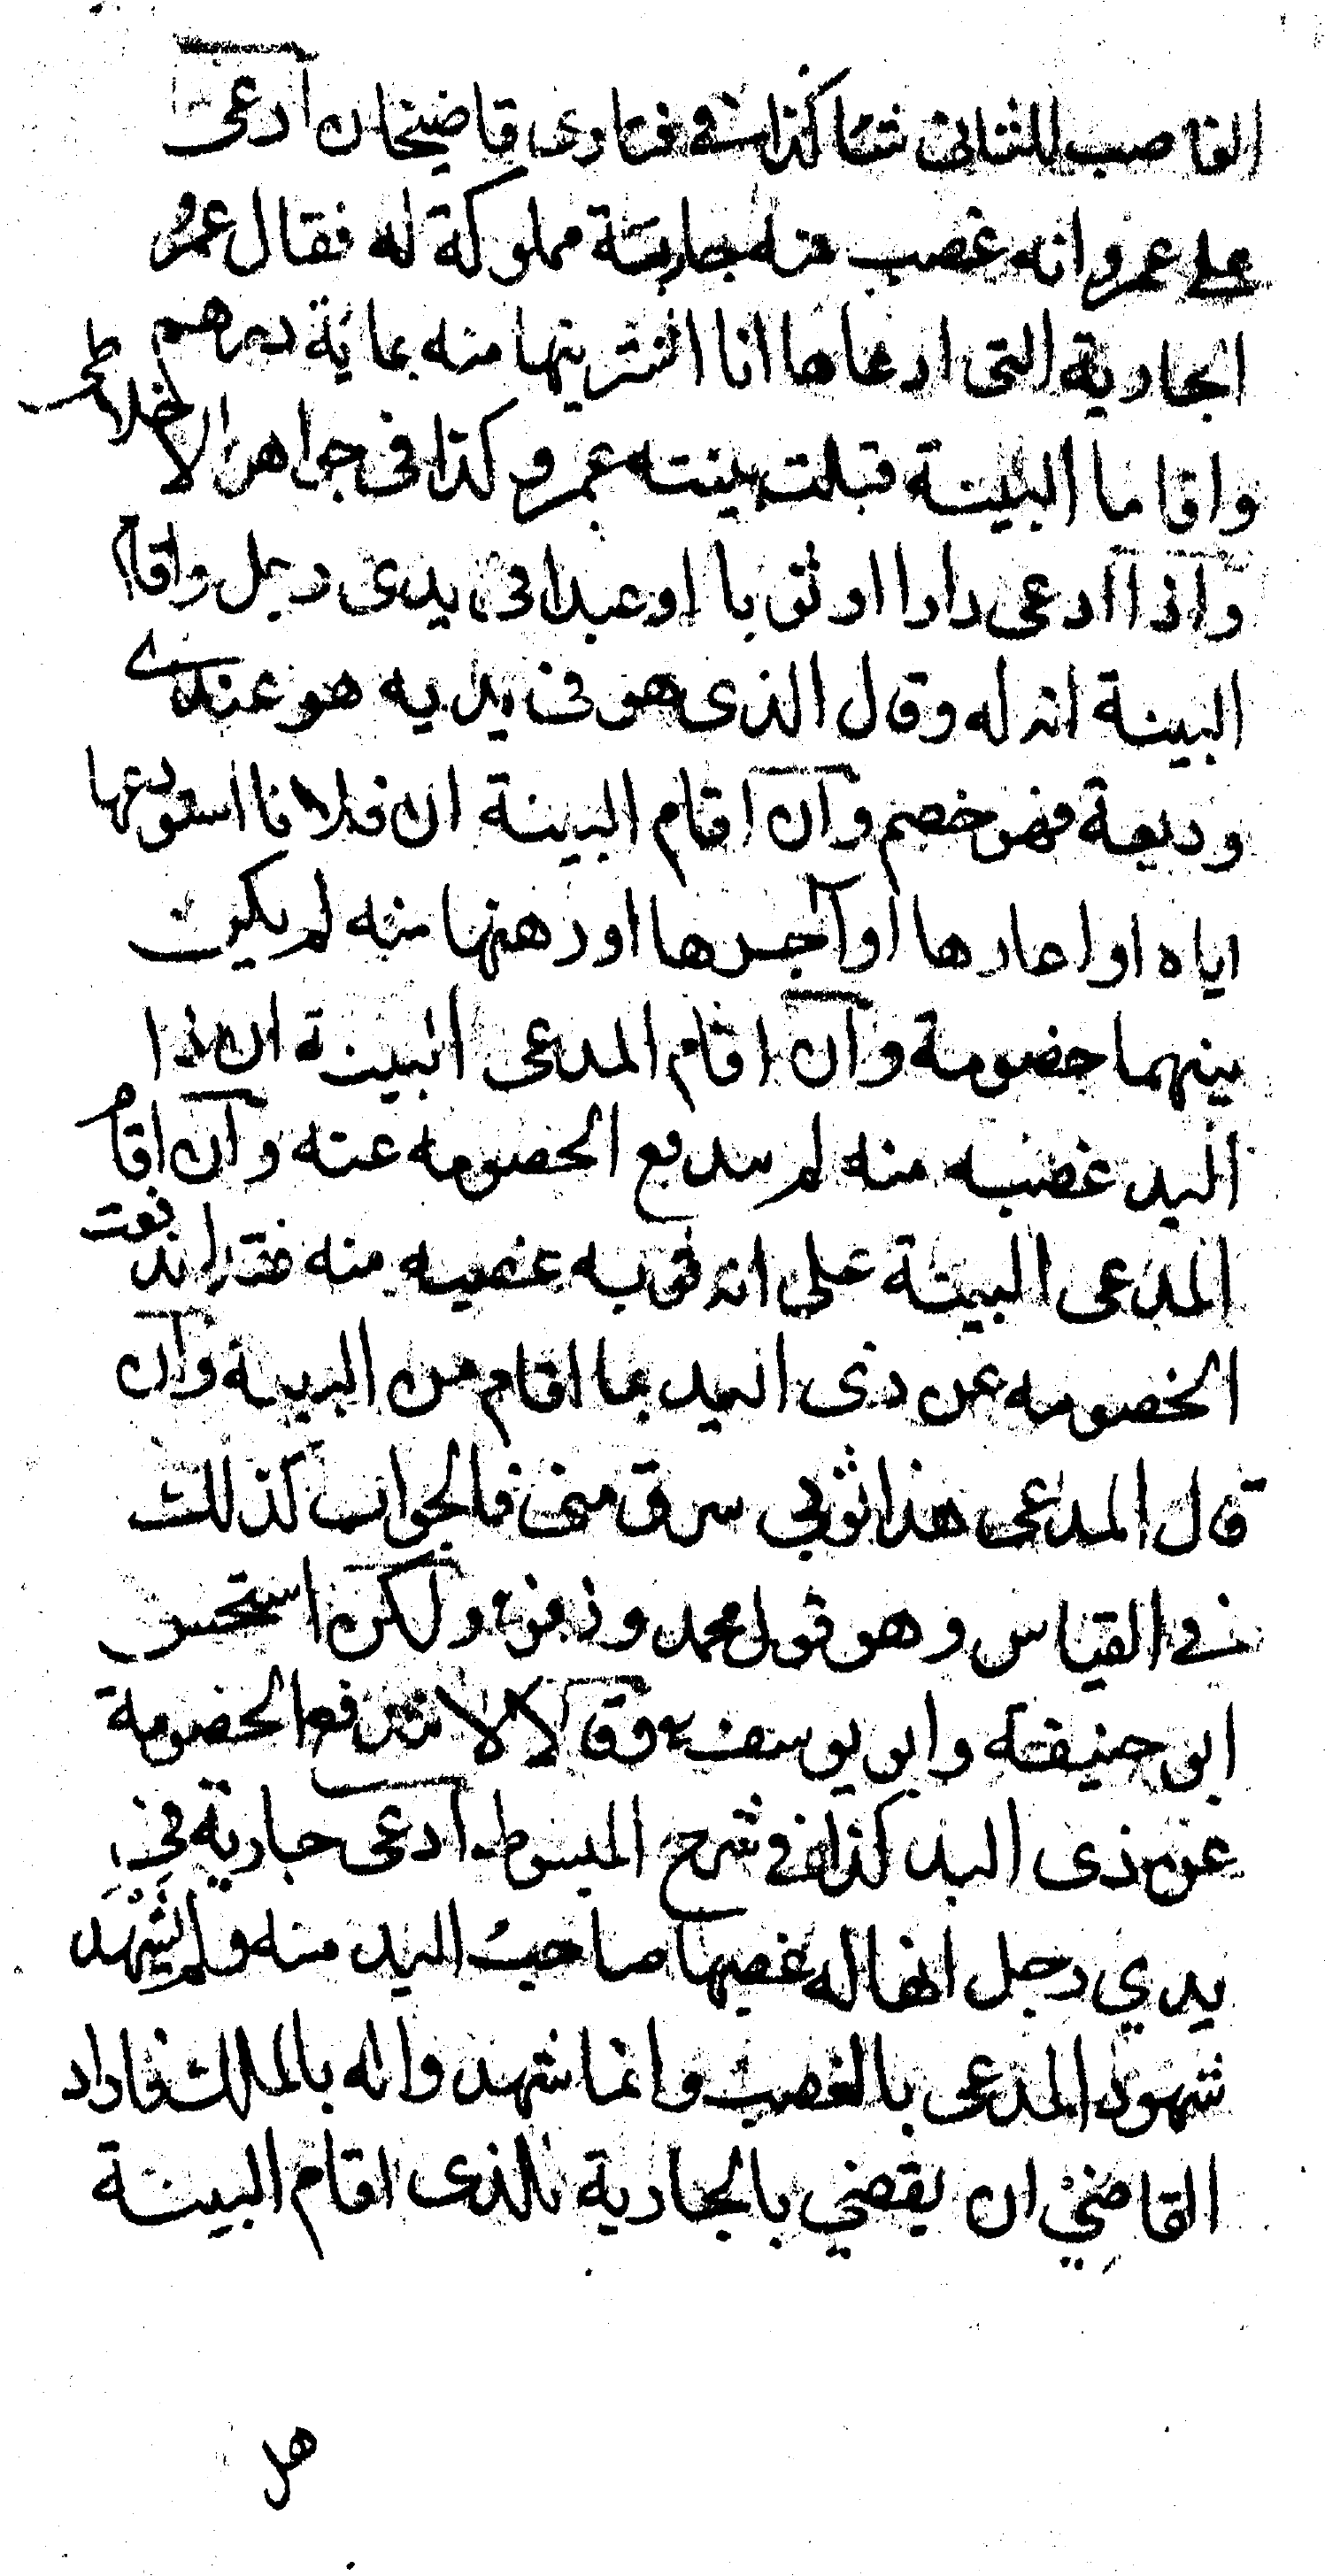 الغاصب للثانى شئا كذا فى فتاوى قاضيخان ادعى
على عمرو انه غصب منه جارية مملوكة له فقال عمرو
الجارية التى ادعاها انا اشتريتها منه بماية درهم
واقاما البينة قبلت بينته عمرو كذا فى جواهر الاخلاطى
واذا ادعى دارا او ثوبا او عبدا فى يدى رجل واقام
البينة انه له وقال الذى هو فى يديه هو عندى
وديعة فهو خصم وان اقام البينة ان فلانا استودعها
اياه او اعارها او آجرها او رهنها منه لم يكن
بينهما خصومة وان اقام المدعى البينة ان ذا
اليد غصبه منه لم يندفع الخصومه عنه وان اقام
المدعى البينة على انه ثوبه غصبه منه فقد اندفعت
الخصومه عن ذى اليد بما اقام من البينة وان
قال المدعى هذا ثوبي سرق منى فالجواب كذلك
فى القياس وهو قول محمد وزفر ولكن استحسن
ابو حنيفة وابو يوسف وقالا لا تندفع الخصومة
عن ذى اليد كذا فى شرح المبسوط ادعى جارية في
يدي رجل انها له غصبها صاحب اليد منه ولم يشهد
شهود المدعى بالغصب وانما شهدوا له بالملك فاراد
القاضي ان يقضي بالجارية للذى اقام البينة
هل